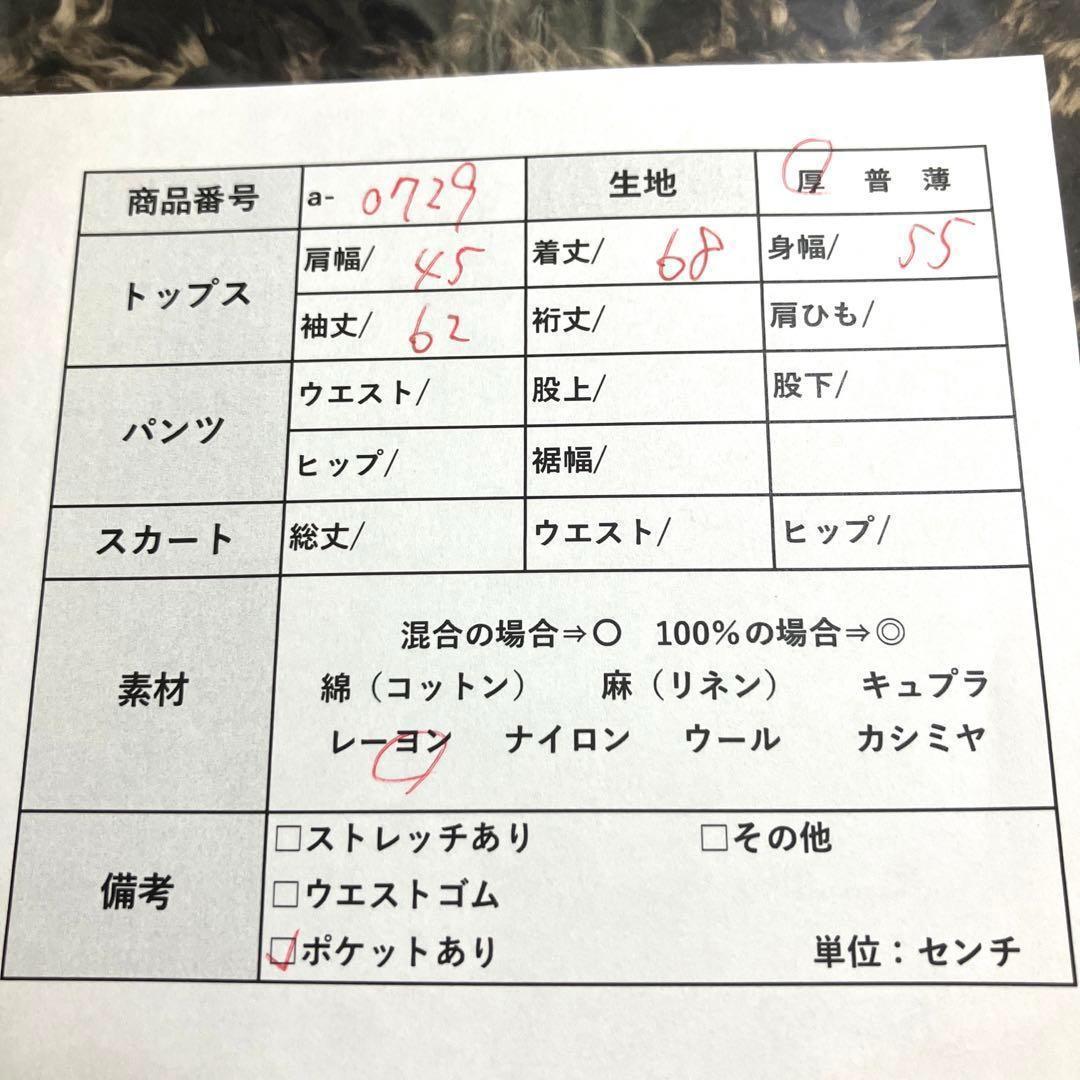 商品番号 a- 0729 生地 厚 普 薄
トップス 肩幅/ 45 着丈/ 68 身幅/ 55
袖丈/ 62 裄丈/ 肩ひも/
パンツ ウエスト/ 股上/ 股下/
ヒップ/ 裾幅/
スカート 総丈/ ウエスト/ ヒップ/
素材 混合の場合⇒〇 100%の場合⇒◎
綿（コットン） 麻（リネン） キュプラ
レーヨン ナイロン ウール カシミヤ
備考 □ストレッチあり □その他
□ウエストゴム
☑ポケットあり 単位：センチ